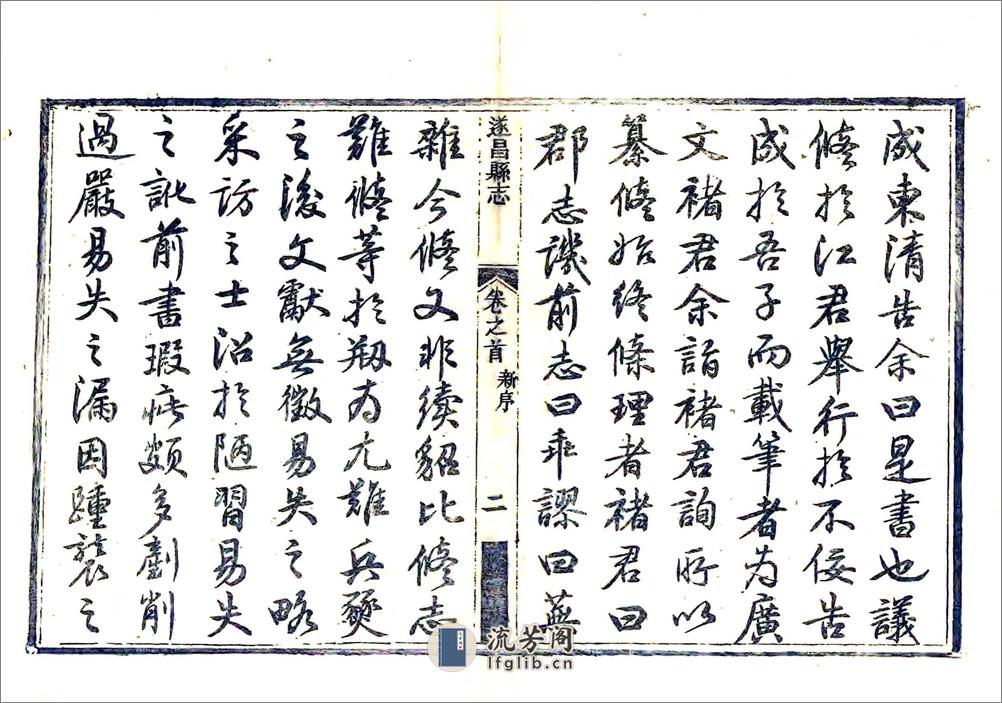 成東清告余曰是書也議
修於江君舉行於不佞告
成於吾子而載筆者為廣
文褚君余詣褚君詢所以
纂修始終條理者褚君曰
郡志譏前志曰乖謬曰蕪
遂昌縣志
卷之首
新序
二
雜今修又非續貂比修志
難修等於剏為尤難兵燹
之後文獻無徵易失之略
采訪之士沿於陋習易失
之訛前書瑕疵頗多劃削
過嚴易失之漏因踵襲之
流芳阁
lfglib.cn